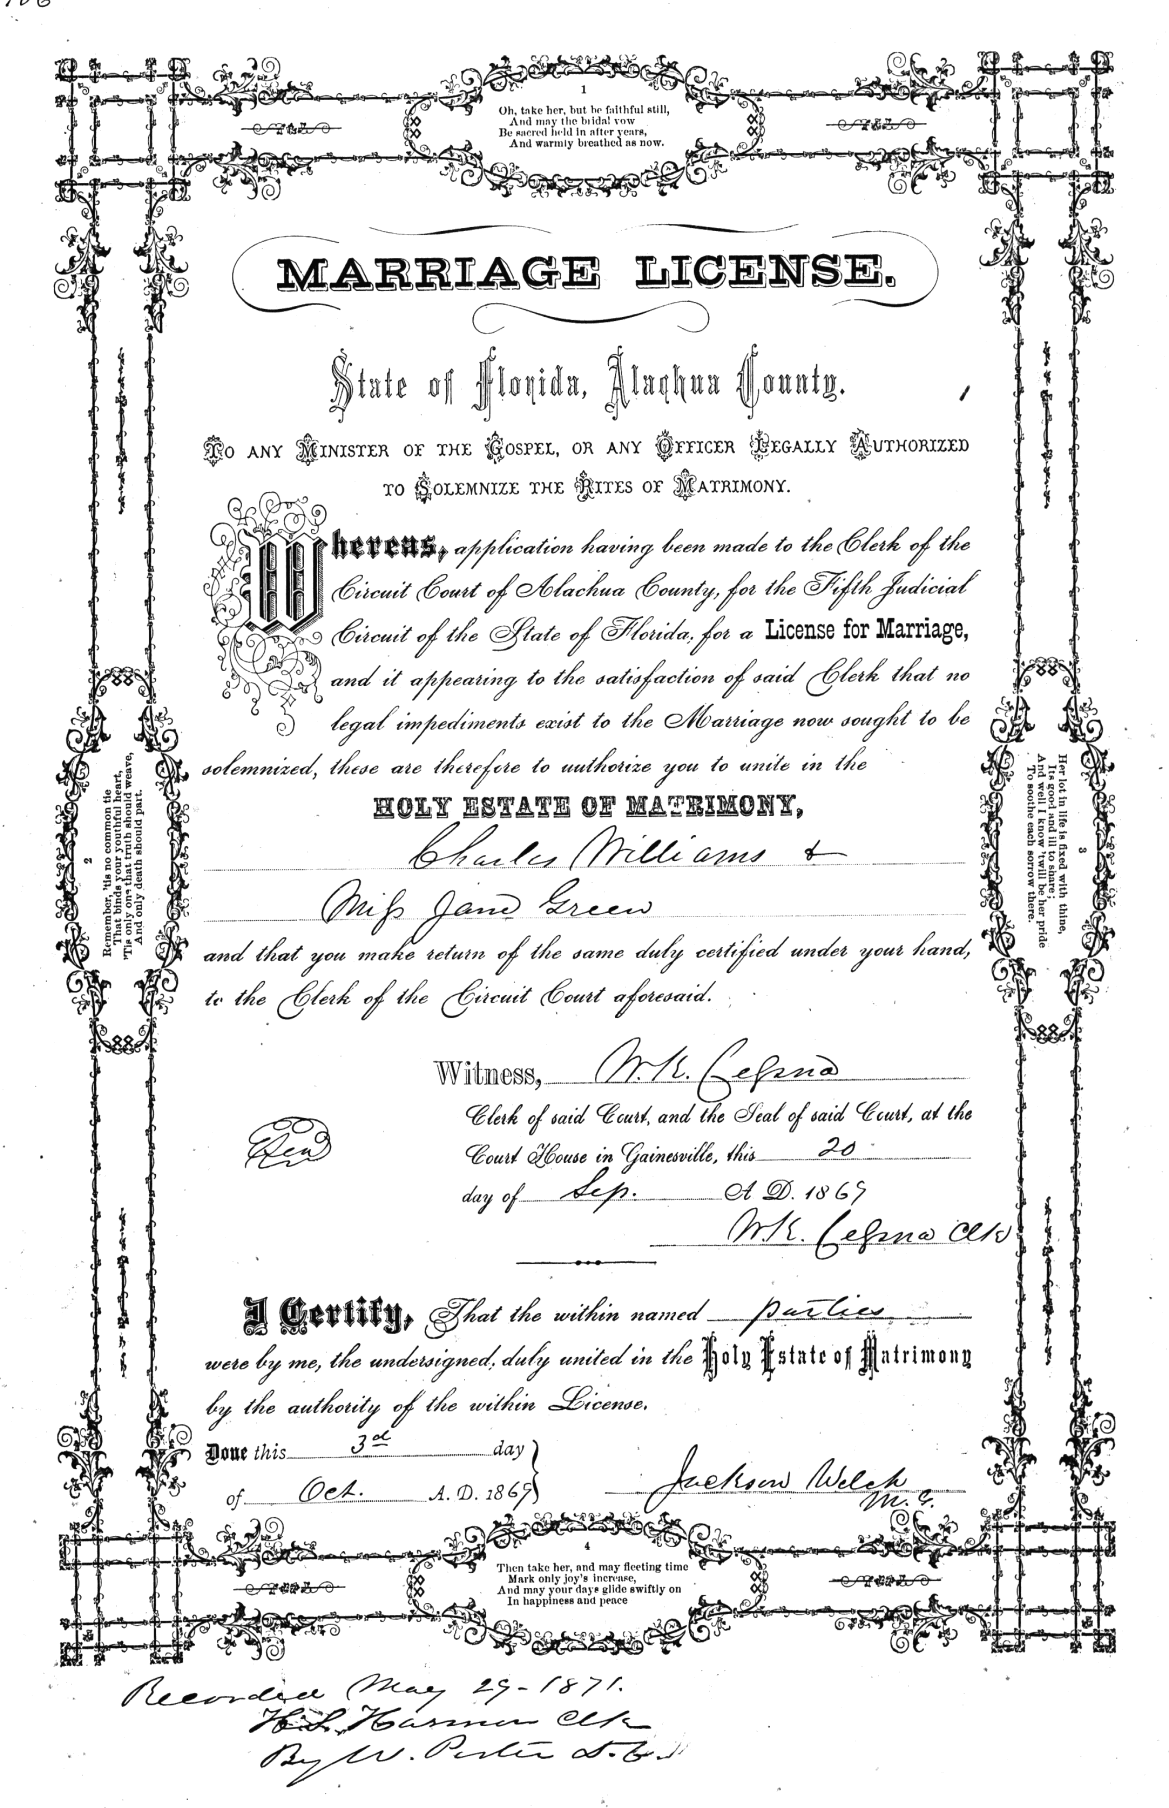 1
Oh, take her, but be faithful still,
And may the bridal vow
Be sacred held in after years,
And warmly breathed as now.
MARRIAGE LICENSE.
State of Florida, Alachua County.
TO ANY MINISTER OF THE GOSPEL, OR ANY OFFICER LEGALLY AUTHORIZED
TO SOLEMNIZE THE RITES OF MATRIMONY.
Whereas, application having been made to the Clerk of the
Circuit Court of Alachua County, for the Fifth Judicial
Circuit of the State of Florida, for a License for Marriage,
and it appearing to the satisfaction of said Clerk that no
legal impediments exist to the Marriage now sought to be
solemnized, these are therefore to authorize you to unite in the
HOLY ESTATE OF MATRIMONY,
Charles Williams &
Miss Jane Green
and that you make return of the same duly certified under your hand,
to the Clerk of the Circuit Court aforesaid.
2
Remember, 'tis no common tie
That binds your youthful heart,
'Tis only one that truth should weave,
And only death should part.
3
Her lot in life is fixed with thine,
Its good and ill to share;
And well I know 'twill be her pride
To soothe each sorrow there.
Witness, W. K. Cessna
Clerk of said Court, and the Seal of said Court, at the
Court House in Gainesville, this 20
day of Sep. A. D. 1869
W. K. Cessna Clk
I Certify, That the within named parties
were by me, the undersigned, duly united in the Holy Estate of Matrimony
by the authority of the within License.
Done this 3d day
of Oct. A. D. 1869
Jackson Welch
M. G.
4
Then take her, and may fleeting time
Mark only joy's increase,
And may your days glide swiftly on
In happiness and peace
Recorded May 29-1871.
H. S. Harmon Clk
By W. Porter D. C.